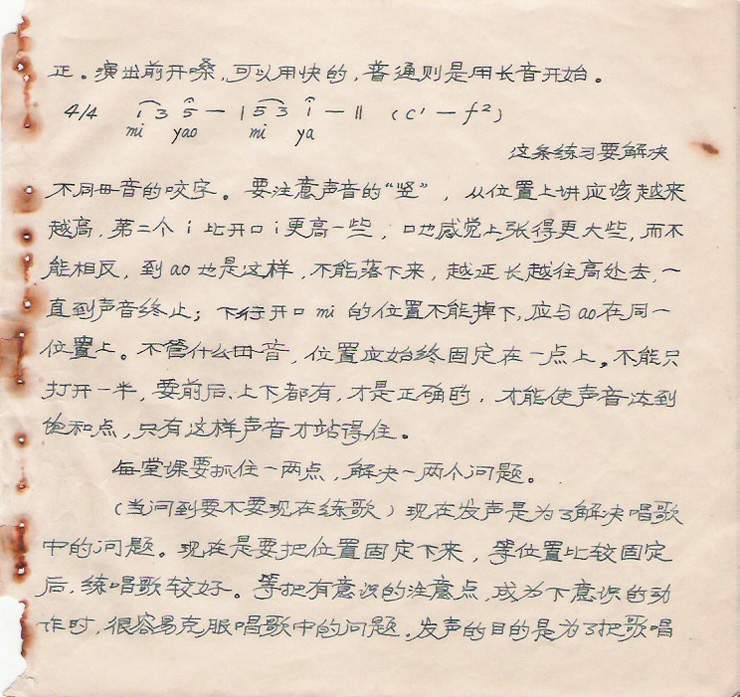 正。演出前开嗓，可以用快的，普通则是用长音开始。
4/4 i 3 5 — | 5 3 i — || (c¹ — f²)
mi yao mi ya
这条练习要解决
不同母音的咬字。要注意声音的“竖”，从位置上讲应该越来
越高，第二个 i 比开口 i 更高一些，口也感觉上张得更大些，而不
能相反，到 ao 也是这样，不能落下来，越延长越往高处去，一
直到声音终止；下行开口 mi 的位置不能掉下，应与 ao 在同一
位置上。不管什么母音，位置应始终固定在一点上。不能只
打开一半，要前后、上下都有，才是正确的，才能使声音达到
饱和点，只有这样声音才站得住。
每堂课要抓住一两点，解决一两个问题。
（当问到要不要现在练歌）现在发声是为了解决唱歌
中的问题。现在是要把位置固定下来，等位置比较固定
后，练唱歌较好。等把有意识的注意点，成为下意识的动
作时，很容易克服唱歌中的问题。发声的目的是为了把歌唱